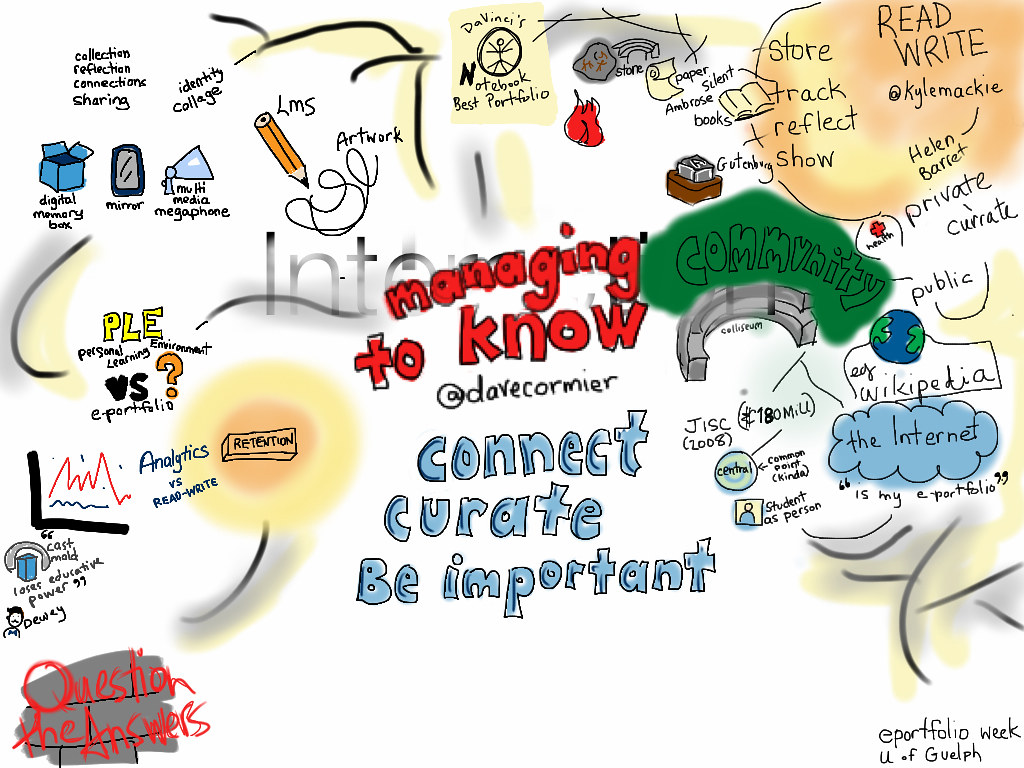 collection
reflection
connections
sharing
identity
collage
Lms
Artwork
digital
memory
box
mirror
multi
media
megaphone
DaVinci's
Notebook
Best Portfolio
store
paper
Silent
Ambrose
books
Gutenburg
store
track
reflect
show
READ
WRITE
@kylemackie
Helen
Barret
private
currate
health
public
managing
to know
@davecormier
community
colliseum
eg
wikipedia
the Internet
"is my e-portfolio"
JISC (£180Mil)
(2008)
central
common
point
(kinda)
Student
as person
PLE
Personal
Learning
Environment
VS ?
e-portfolio
RETENTION
Analytics
vs
READ-WRITE
connect
curate
Be important
"cast
mold
loses educative
power"
Dewey
Question
the Answers
eportfolio week
U of Guelph